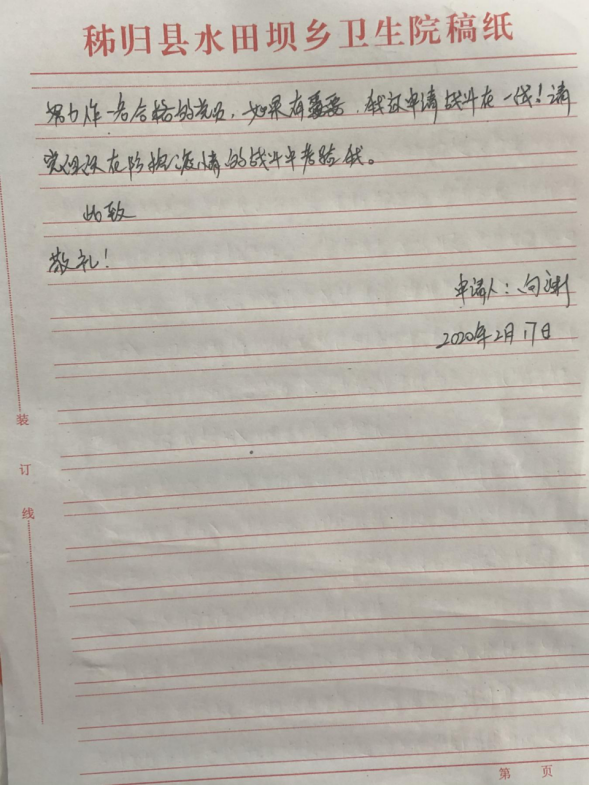 秭归县水田坝乡卫生院稿纸
努力作一名合格的党员，如果有需要，我议申请战斗在一线！请
党组织在防控疫情的战斗中考验我。
此致
敬礼！
申请人：向
2020年2月17日
装
订
线
第 页